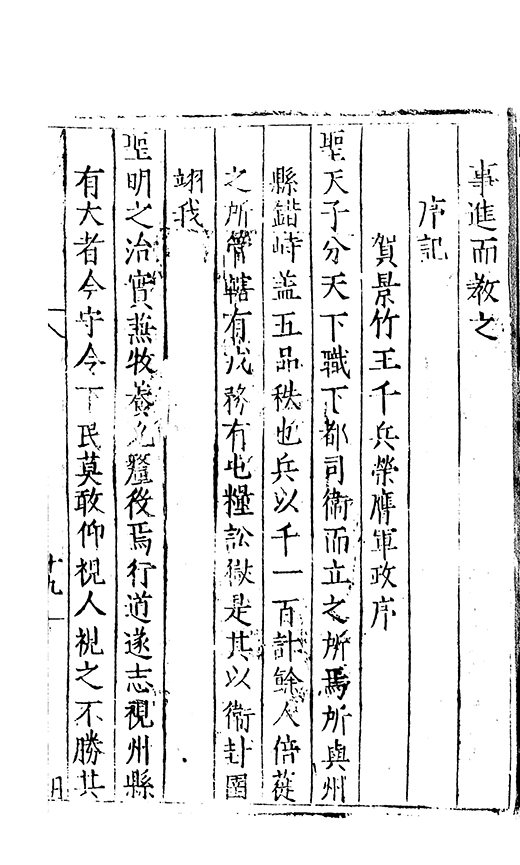 事進而教之
序記
賀景竹王千兵榮膺軍政序
聖天子分天下職下都司衛而立之所焉所與州
縣錯峙盖五品秩也兵以千一百計餘人倍蓰
之所管轄有戎務有屯糧訟獄是其以衛封圉
翊我
聖明之治實兼牧養之釐後焉行道遂志視州縣
有大者今守令下民莫敢仰視人視之不勝其
十九